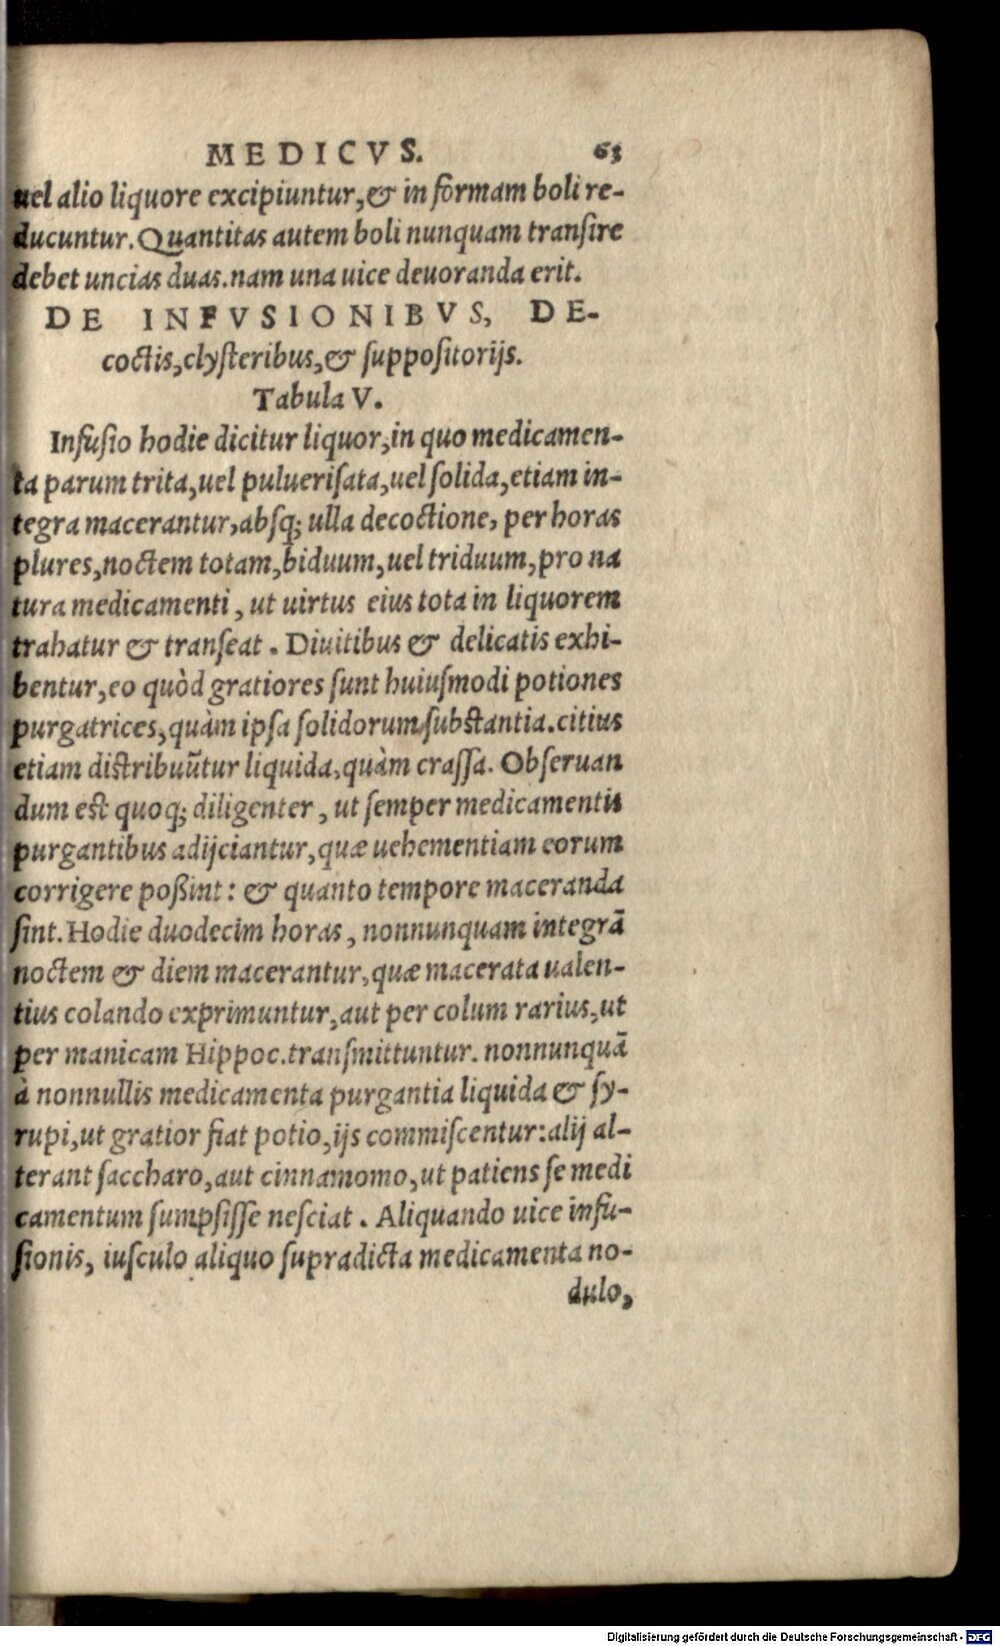 MEDICVS. 63
uel alio liquore excipiuntur, & in formam boli re-
ducuntur. Quantitas autem boli nunquam transire
debet uncias duas. nam una uice deuoranda erit.
DE INFVSIONIBVS, DE-
coctis, clysteribus, & suppositorijs.
Tabula V.
Infusio hodie dicitur liquor, in quo medicamen-
ta parum trita, uel puluerisata, uel solida, etiam in-
tegra macerantur, absq; ulla decoctione, per horas
plures, noctem totam, biduum, uel triduum, pro na
tura medicamenti, ut uirtus eius tota in liquorem
trahatur & transeat. Diuitibus & delicatis exhi-
bentur, eo quòd gratiores sunt huiusmodi potiones
purgatrices, quàm ipsa solidorum substantia. citius
etiam distribuūtur liquida, quàm crassa. Obseruan
dum est quoq; diligenter, ut semper medicamentis
purgantibus adijciantur, quæ uehementiam eorum
corrigere poßint: & quanto tempore maceranda
sint. Hodie duodecim horas, nonnunquam integrā
noctem & diem macerantur, quæ macerata ualen-
tius colando exprimuntur, aut per colum rarius, ut
per manicam Hippoc. transmittuntur. nonnunquā
à nonnullis medicamenta purgantia liquida & sy-
rupi, ut gratior fiat potio, ijs commiscentur: alij al-
terant saccharo, aut cinnamomo, ut patiens se medi
camentum sumpsisse nesciat. Aliquando uice infu-
sionis, iusculo aliquo supradicta medicamenta no-
dulo,
Digitalisierung gefördert durch die Deutsche Forschungsgemeinschaft - DFG